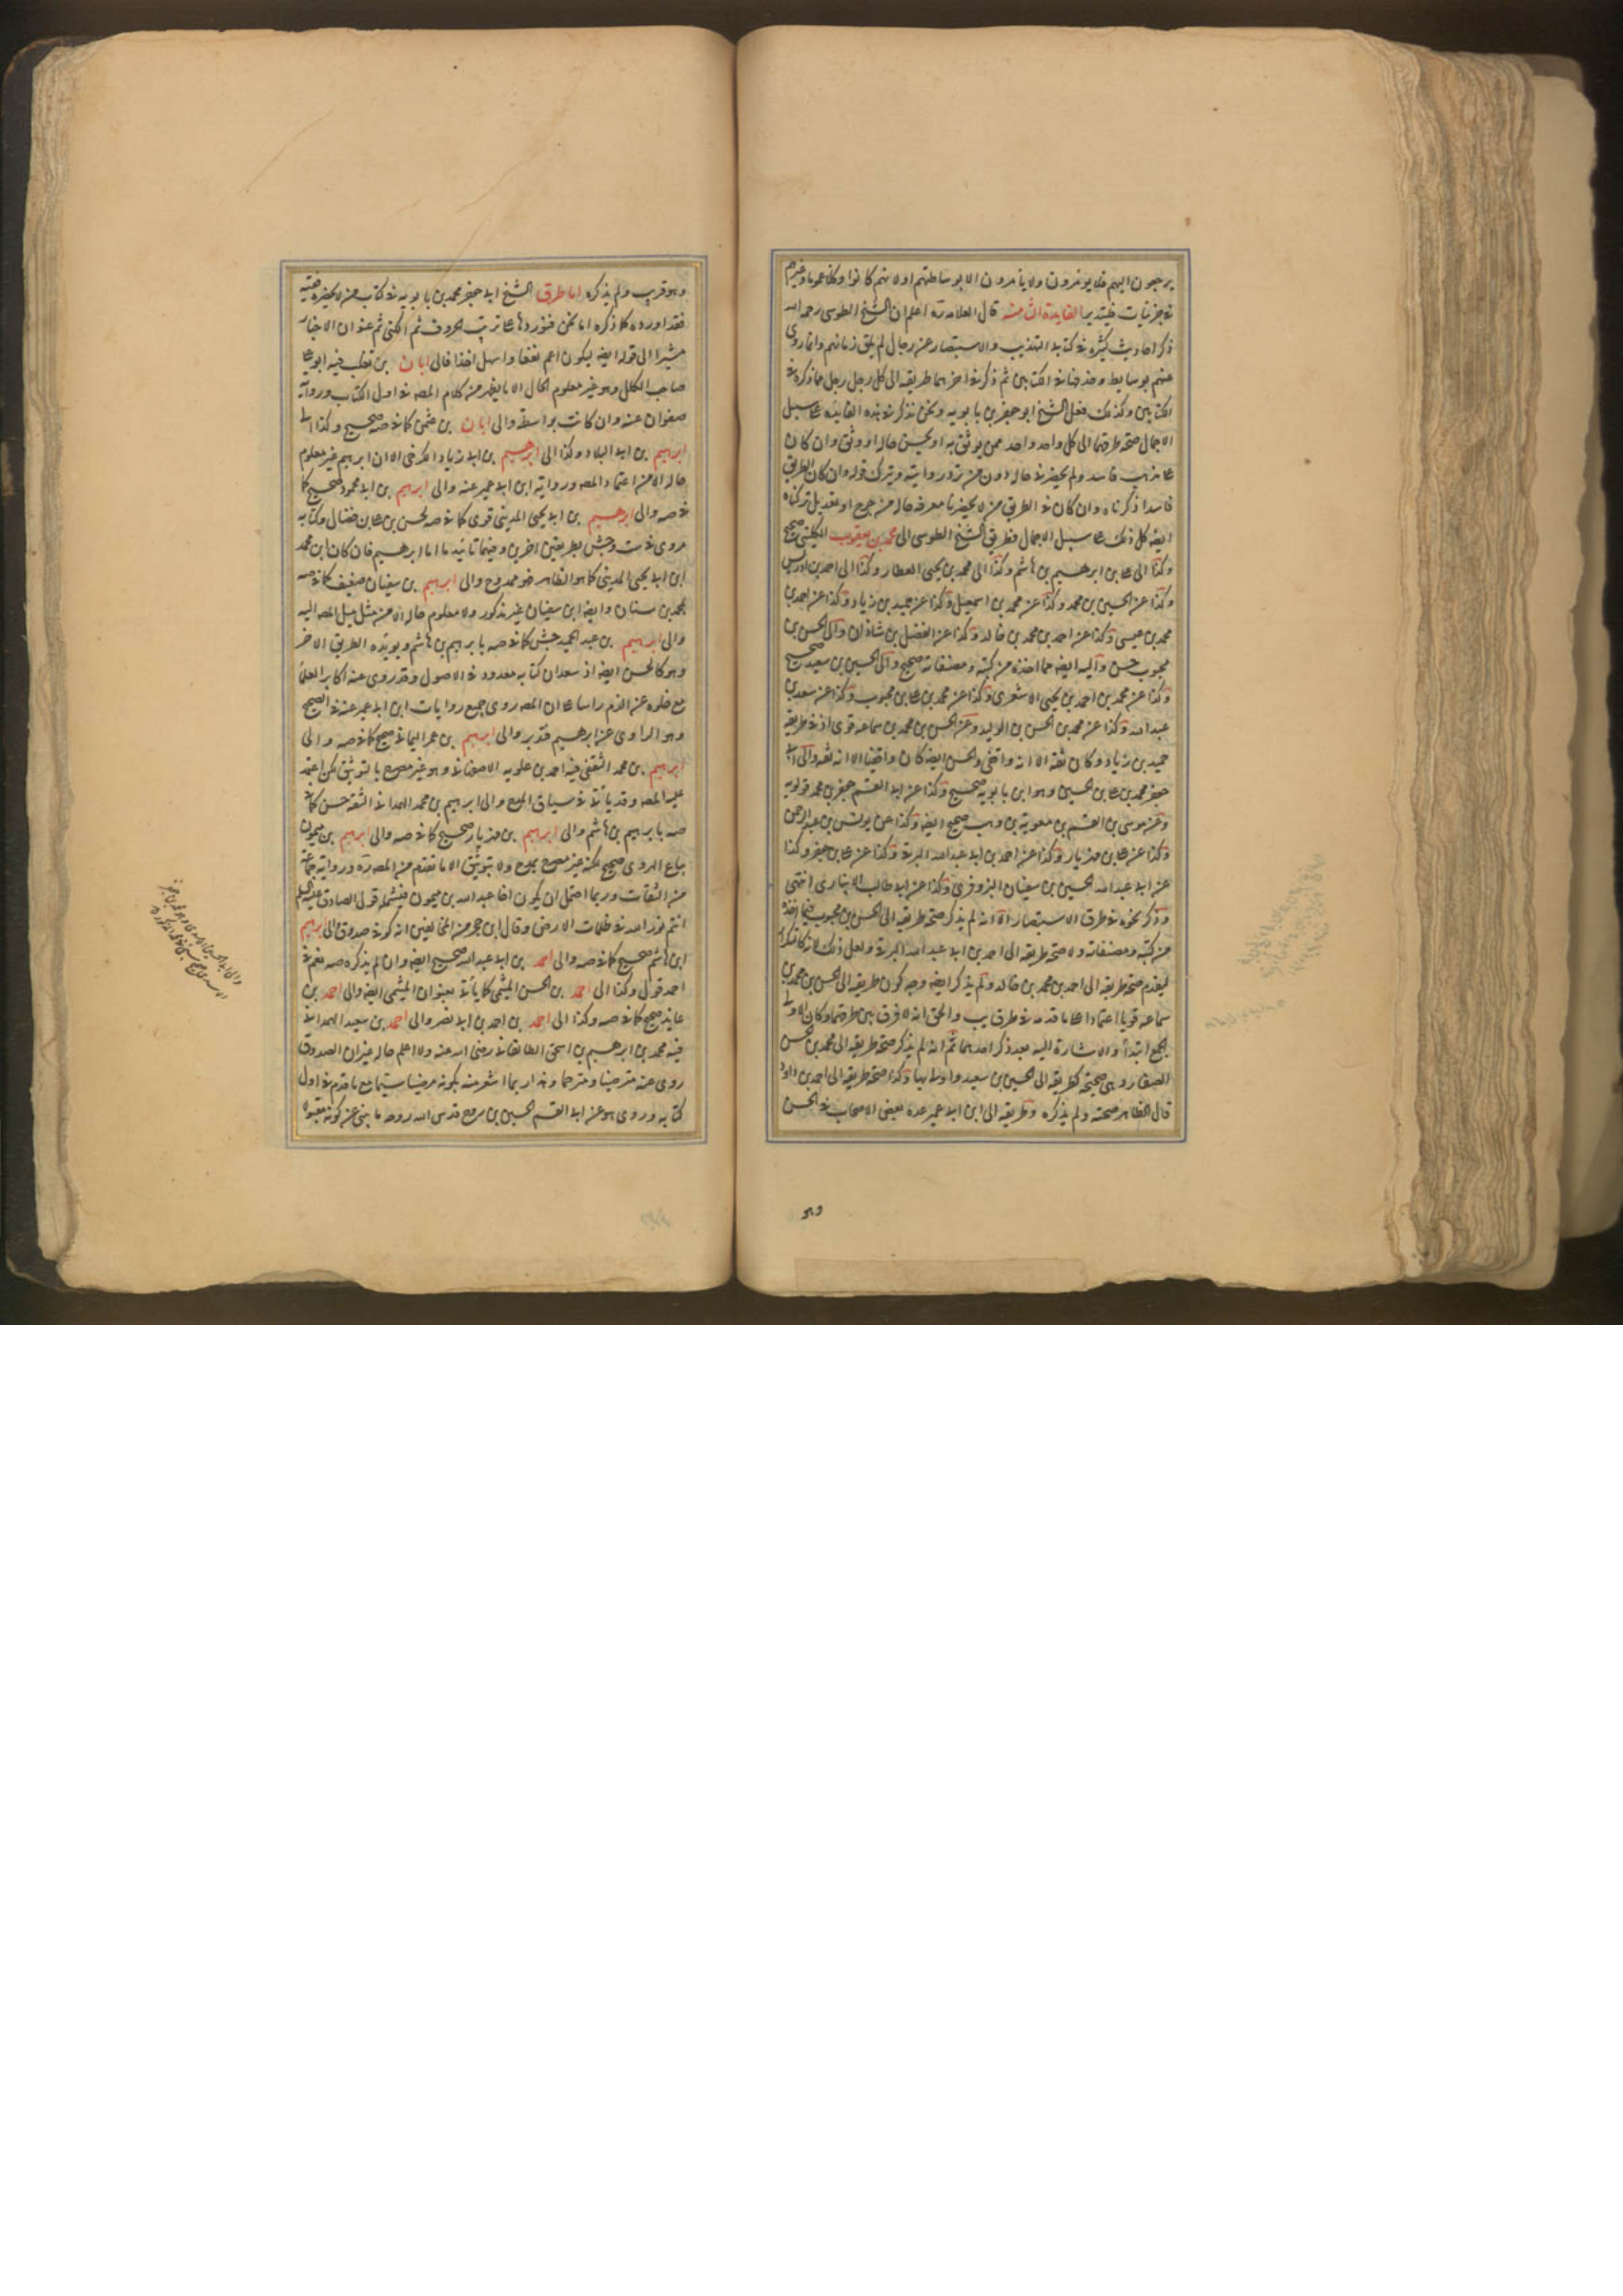 يرجعون اليهم فلا يؤمرون ولا يأمرون الا بوساطتهم اولانهم كانوا وكلا عموما وغيرهم
في جزئيات فليتدبر الفايدة الثامنة قال العلامة ره اعلم ان الشيخ الطوسى رحمه الله
ذكر احاديث كثيرة في كتابيه التهذيب والاستبصار عن رجال لم يلق زمانهم وانما روى
عنهم بوسايط وحذفها في الكتابين ثم ذكر في اخرهما طريقه الى كل رجل رجل مما ذكره في
الكتابين وكذلك فعل الشيخ ابو جعفر بن بابويه ونحن نذكر في هذه الفايدة على سبيل
الاجمال صحة طرقهما الى كل واحد واحد ممن يوثق به او يحسن حاله او وثق وان كان
على مذهب فاسد ولم يحضرني حاله دون من ترد روايته ويترك قوله وان كان الطريق
فاسدا ذكرناه وان كان في الطريق من لا يحضرنا معرفة حاله من جرح او تعديل تركناه
ايضا كل ذلك على سبيل الاجمال فطريق الشيخ الطوسى الى محمد بن يعقوب الكلينى صحيح
وكذا الى على بن ابرهيم بن هاشم وكذا الى محمد بن يحيى العطار وكذا الى احمد بن ادريس
وكذا عن الحسين بن محمد وكذا عن محمد بن اسمعيل وكذا عن حميد بن زياد وكذا عن احمد بن
محمد بن عيسى وكذا عن احمد بن محمد بن خالد وكذا عن الفضل بن شاذان والى الحسن بن
محبوب حسن واليه ايضا مما اخذه من كتبه ومصنفاته صحيح والى الحسين بن سعيد صحيح
وكذا عن محمد بن احمد بن يحيى الاشعرى وكذا عن محمد بن على بن محبوب وكذا عن سعد بن
عبد الله وكذا عن محمد بن الحسن بن الوليد وعن الحسن بن محمد بن سماعه قوى اذ في طريقه
حميد بن زياد وكان ثقة الا انه واقفى والحسن ايضا كان واقفيا الا انه ثقة والى ابى
جعفر محمد بن على بن الحسين وهو ابن بابويه صحيح وكذا عن ابى القسم جعفر بن محمد قولويه
وعن موسى بن القسم بن معوية بن وهب صحيح ايضا وكذا عن يونس بن عبد الرحمن
وكذا عن على بن مهزيار وكذا عن احمد بن ابى عبد الله البرقى وكذا عن على بن جعفر وكذا
عن ابى عبد الله الحسين بن سفيان البزوفرى وكذا عن ابى طالب الانبارى انتهى
وذكر نحوه في طرق الاستبصار الا انه لم يذكر صحة طريقه الى الحسن بن محبوب فيما اخذه
من كتبه ومصنفاته ولا صحة طريقه الى احمد بن ابى عبد الله البرقى ولعل ذلك لانه كالتكرار
لتقدم صحة طريقه الى احمد بن محمد بن خالد ولم يذكر ايضا وجه كون طريقه الى الحسن بن محمد بن
سماعه قويا اعتمادا على ما قدمه في طرق يب والحق انه لا فرق بين طرقهما وكان الاولى
الجمع ابتداء والاشارة اليه بعد ذكر احدهما ثم انه لم يذكر صحة طريقه الى محمد بن الحسن
الصفار وهى صحيحة كطريقه الى الحسين بن سعيد واولى بها وكذا صحة طريقه الى احمد بن داود
قال الظاهر صحته ولم يذكره وطريقه الى ابن ابى عمير عده بعض الاصحاب في الحسن
وهو
وهو قريب ولم يذكره اما طرق الشيخ ابى جعفر محمد بن بابويه في كتاب من لا يحضره الفقيه
فقد اورده كلا ذكره اما نحن فنوردها على ترتيب الحروف ثم الكنى ثم عنوان الاخبار
مشيرا الى قوله ايضا ليكون اعم نفعا واسهل اخذا فالى ابان بن تغلب فيه ابو على
صاحب الكلل وهو غير معلوم الحال الا ما يظهر من كلام المصه في اول الكتاب ورواية
صفوان عنه وان كانت بواسطة والى ابان بن عثمن كما في صه صحيح وكذا الى
ابرهيم بن ابى البلاد وكذا الى ابرهيم بن ابى زياد الكرخى الا ان ابرهيم غير معلوم
حاله الا من اعتماد المصه ورواية ابن ابى عمير عنه والى ابرهيم بن ابى محمود صحيح كما
في صه والى ابرهيم بن ابى يحيى المدينى قوى كما في صه لحسن بن على بن فضال وكتابه
مروى في ست وجش بطريقين اخرين وفيهما تائيد ما اما ابرهيم فان كان ابن محمد
ابن ابى يحيى المدينى كما هو الظاهر فهو ممدوح والى ابرهيم بن سفيان ضعيف كما في صه
بمحمد بن سنان وايضا ابن سفيان غير مذكور ولا معلوم حاله الا من مثل ميل المصه اليه
والى ابرهيم بن عبد الحميد جش كما في صه بابرهيم بن هاشم ويؤيده الطريق الاخر
وهو كالحسن ايضا اذ سعدان كتابه معدود في الاصول وقد روى عنه اكابر العلماء
مع خلوه عن الذم راسا على ان المصه روى جميع روايات ابن ابى عمير عنه في الصحيح
وهو الراوى عن ابرهيم فتدبر والى ابرهيم بن عمر اليمانى صحيح كما في صه والى
ابرهيم بن محمد الثقفى فيه احمد بن علويه الاصفهانى وهو غير مصرح بالتوثيق لكن اعتمد
عليه المصه وقد يأتى في سياق المدح والى ابرهيم بن محمد الهمدانى الثقة حسن كما في
صه بابرهيم بن هاشم والى ابرهيم بن مهزيار صحيح كما في صه والى ابرهيم بن ميمون
بياع الهروى صحيح لكنه غير مصرح بمدح ولا بتوثيق الا ما تقدم من المصه ره ورواية جماعة
من الثقات وربما احتمل ان يكون اخا عبد الله بن ميمون فيشمله قول الصادق عليه السلم
انتم نور الله في ظلمات الارض وقال ابن حجر من المخالفين انه كوفى صدوق والى ابرهيم
ابن هاشم صحيح كما في صه والى احمد بن ابى عبد الله صحيح ايضا وان لم يذكره صه نعم في
احمد قول وكذا الى احمد بن الحسن الميثمى كما يأتى بعنوان الميثمى ايضا والى احمد بن
عايذ صحيح كما في صه وكذا الى احمد بن احمد بن ابى نصر والى احمد بن سعيد الهمدانى
فيه محمد بن ابرهيم بن اسحق الطالقانى رضى الله عنه ولا اعلم حاله غير ان الصدوق
روى عنه مترضيا ومترحما وهذا ربما اشعر منه بكونه مرضيا سيما مع ما قدم في اول
كتابه وروى هو عن ابى القسم الحسين بن روح قدس الله روحه ما ينبئ عن كونه مقبولا